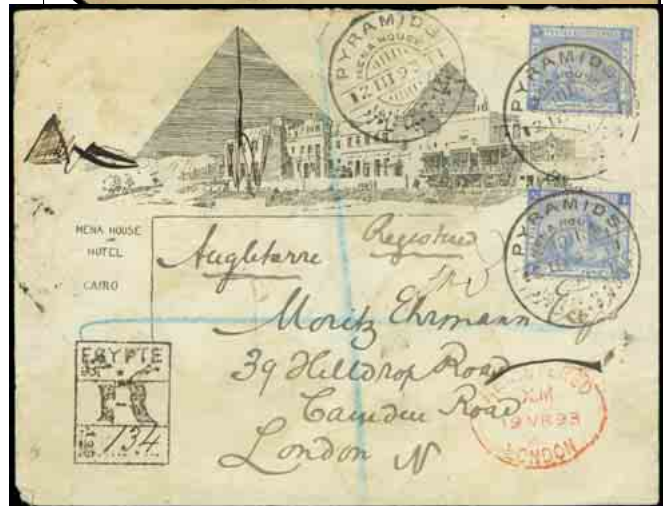 PYRAMIDS
MENA HOUSE
12 III 93
PYRAMIDS
MENA HOUSE
12 III
PYRAMIDS
MENA HOUSE
MENA HOUSE
HOTEL
CAIRO
Angleterre
Registered
Moritz Ehrmann
39 Hilldrop Road
Camden Road
London N
EGYPTE
R
134
REGISTERED
19 MR 93
LONDON